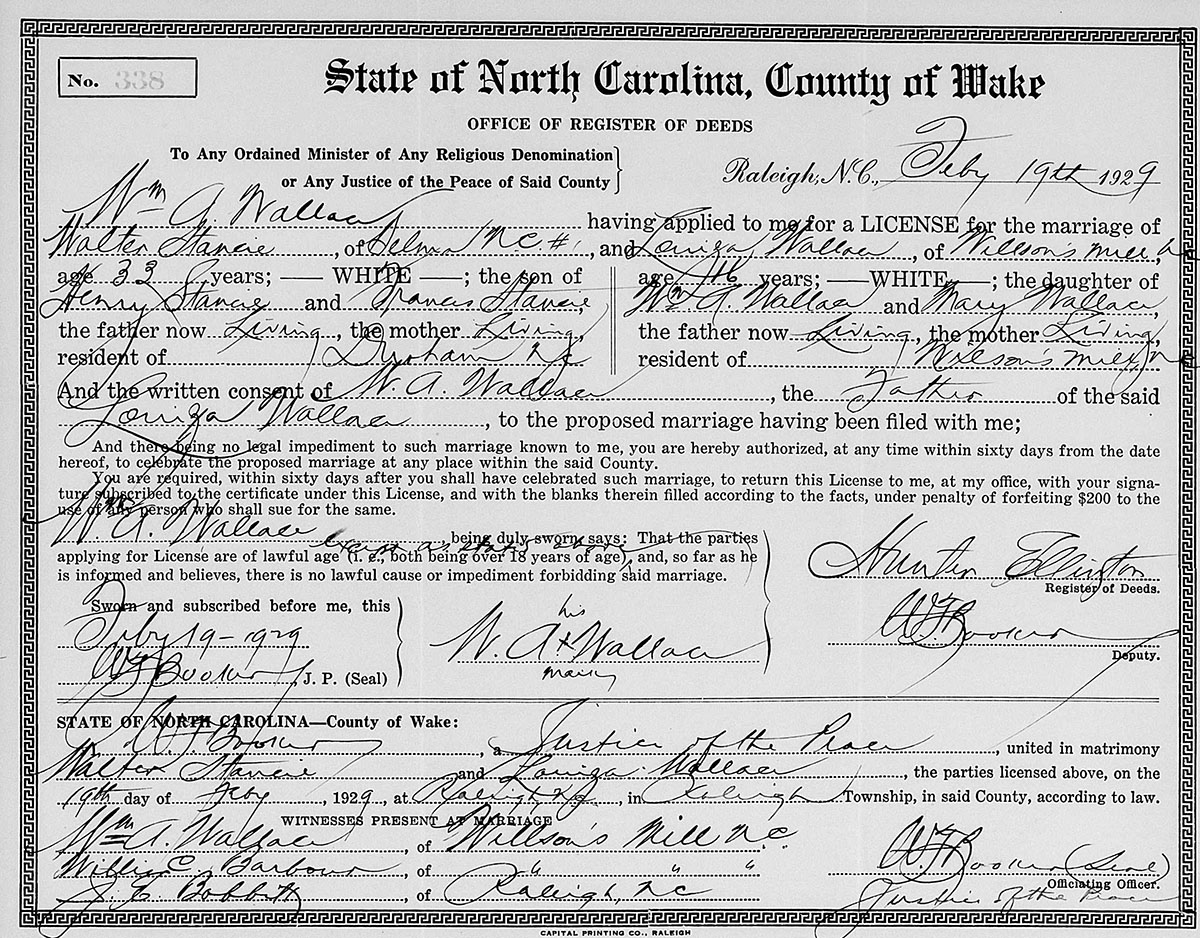 No. 338
State of North Carolina, County of Wake
OFFICE OF REGISTER OF DEEDS
To Any Ordained Minister of Any Religious Denomination
or Any Justice of the Peace of Said County
Raleigh, N.C., Feby 19th 1929
Wm A. Wallace having applied to me for a LICENSE for the marriage of
Walter Stancie, of Selma N.C. #1, and Louiza Wallace, of Willson's Mill, N
age 33 years; — WHITE —; the son of
Henry Stancie and Francis Stancie,
the father now Living, the mother Living,
resident of Durham N.C
age 16 years; — WHITE —; the daughter of
Wm A. Wallace and Mary Wallace,
the father now Living, the mother Living,
resident of Wilson's Mill, N
And the written consent of W. A. Wallace, the Father of the said
Louiza Wallace, to the proposed marriage having been filed with me;
And there being no legal impediment to such marriage known to me, you are hereby authorized, at any time within sixty days from the date
hereof, to celebrate the proposed marriage at any place within the said County.
You are required, within sixty days after you shall have celebrated such marriage, to return this License to me, at my office, with your signa-
ture subscribed to the certificate under this License, and with the blanks therein filled according to the facts, under penalty of forfeiting $200 to the
use of any person who shall sue for the same.
Wm A. Wallace being duly sworn says: That the parties
except as stated above
applying for License are of lawful age (i. e., both being over 18 years of age), and, so far as he
is informed and believes, there is no lawful cause or impediment forbidding said marriage.
Hunter Ellington
Register of Deeds.
Sworn and subscribed before me, this
Feby 19-1929
W.F. Booker J. P. (Seal)
his
W. A x Wallace
mark
W.F. Booker
Deputy.
STATE OF NORTH CAROLINA—County of Wake:
I, W.F. Booker, a Justice of the Peace, united in matrimony
Walter Stancie and Louiza Wallace, the parties licensed above, on the
19th day of Feby, 1929, at Raleigh N.C., in Raleigh Township, in said County, according to law.
WITNESSES PRESENT AT MARRIAGE
Wm A. Wallace, of Willson's Mill N.C.
Willie C. Barbour, of " " "
J. E. Bobbitt, of Raleigh, N.C
W.F. Booker (Seal)
Officiating Officer.
Justice of the Peace
CAPITAL PRINTING CO., RALEIGH